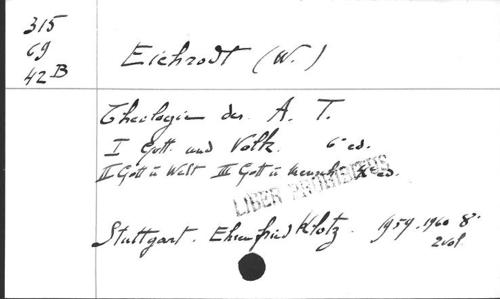 315
69
42 B
Eichrodt (W.)
Theologie des A. T.
I Gott und Volk. 6e ed.
II Gott u Welt III Gott u Mensch ed.
LIBER PROHIBITUS
Stuttgart. Ehrenfried Klotz. 1959.1960 8°.
2 vol.